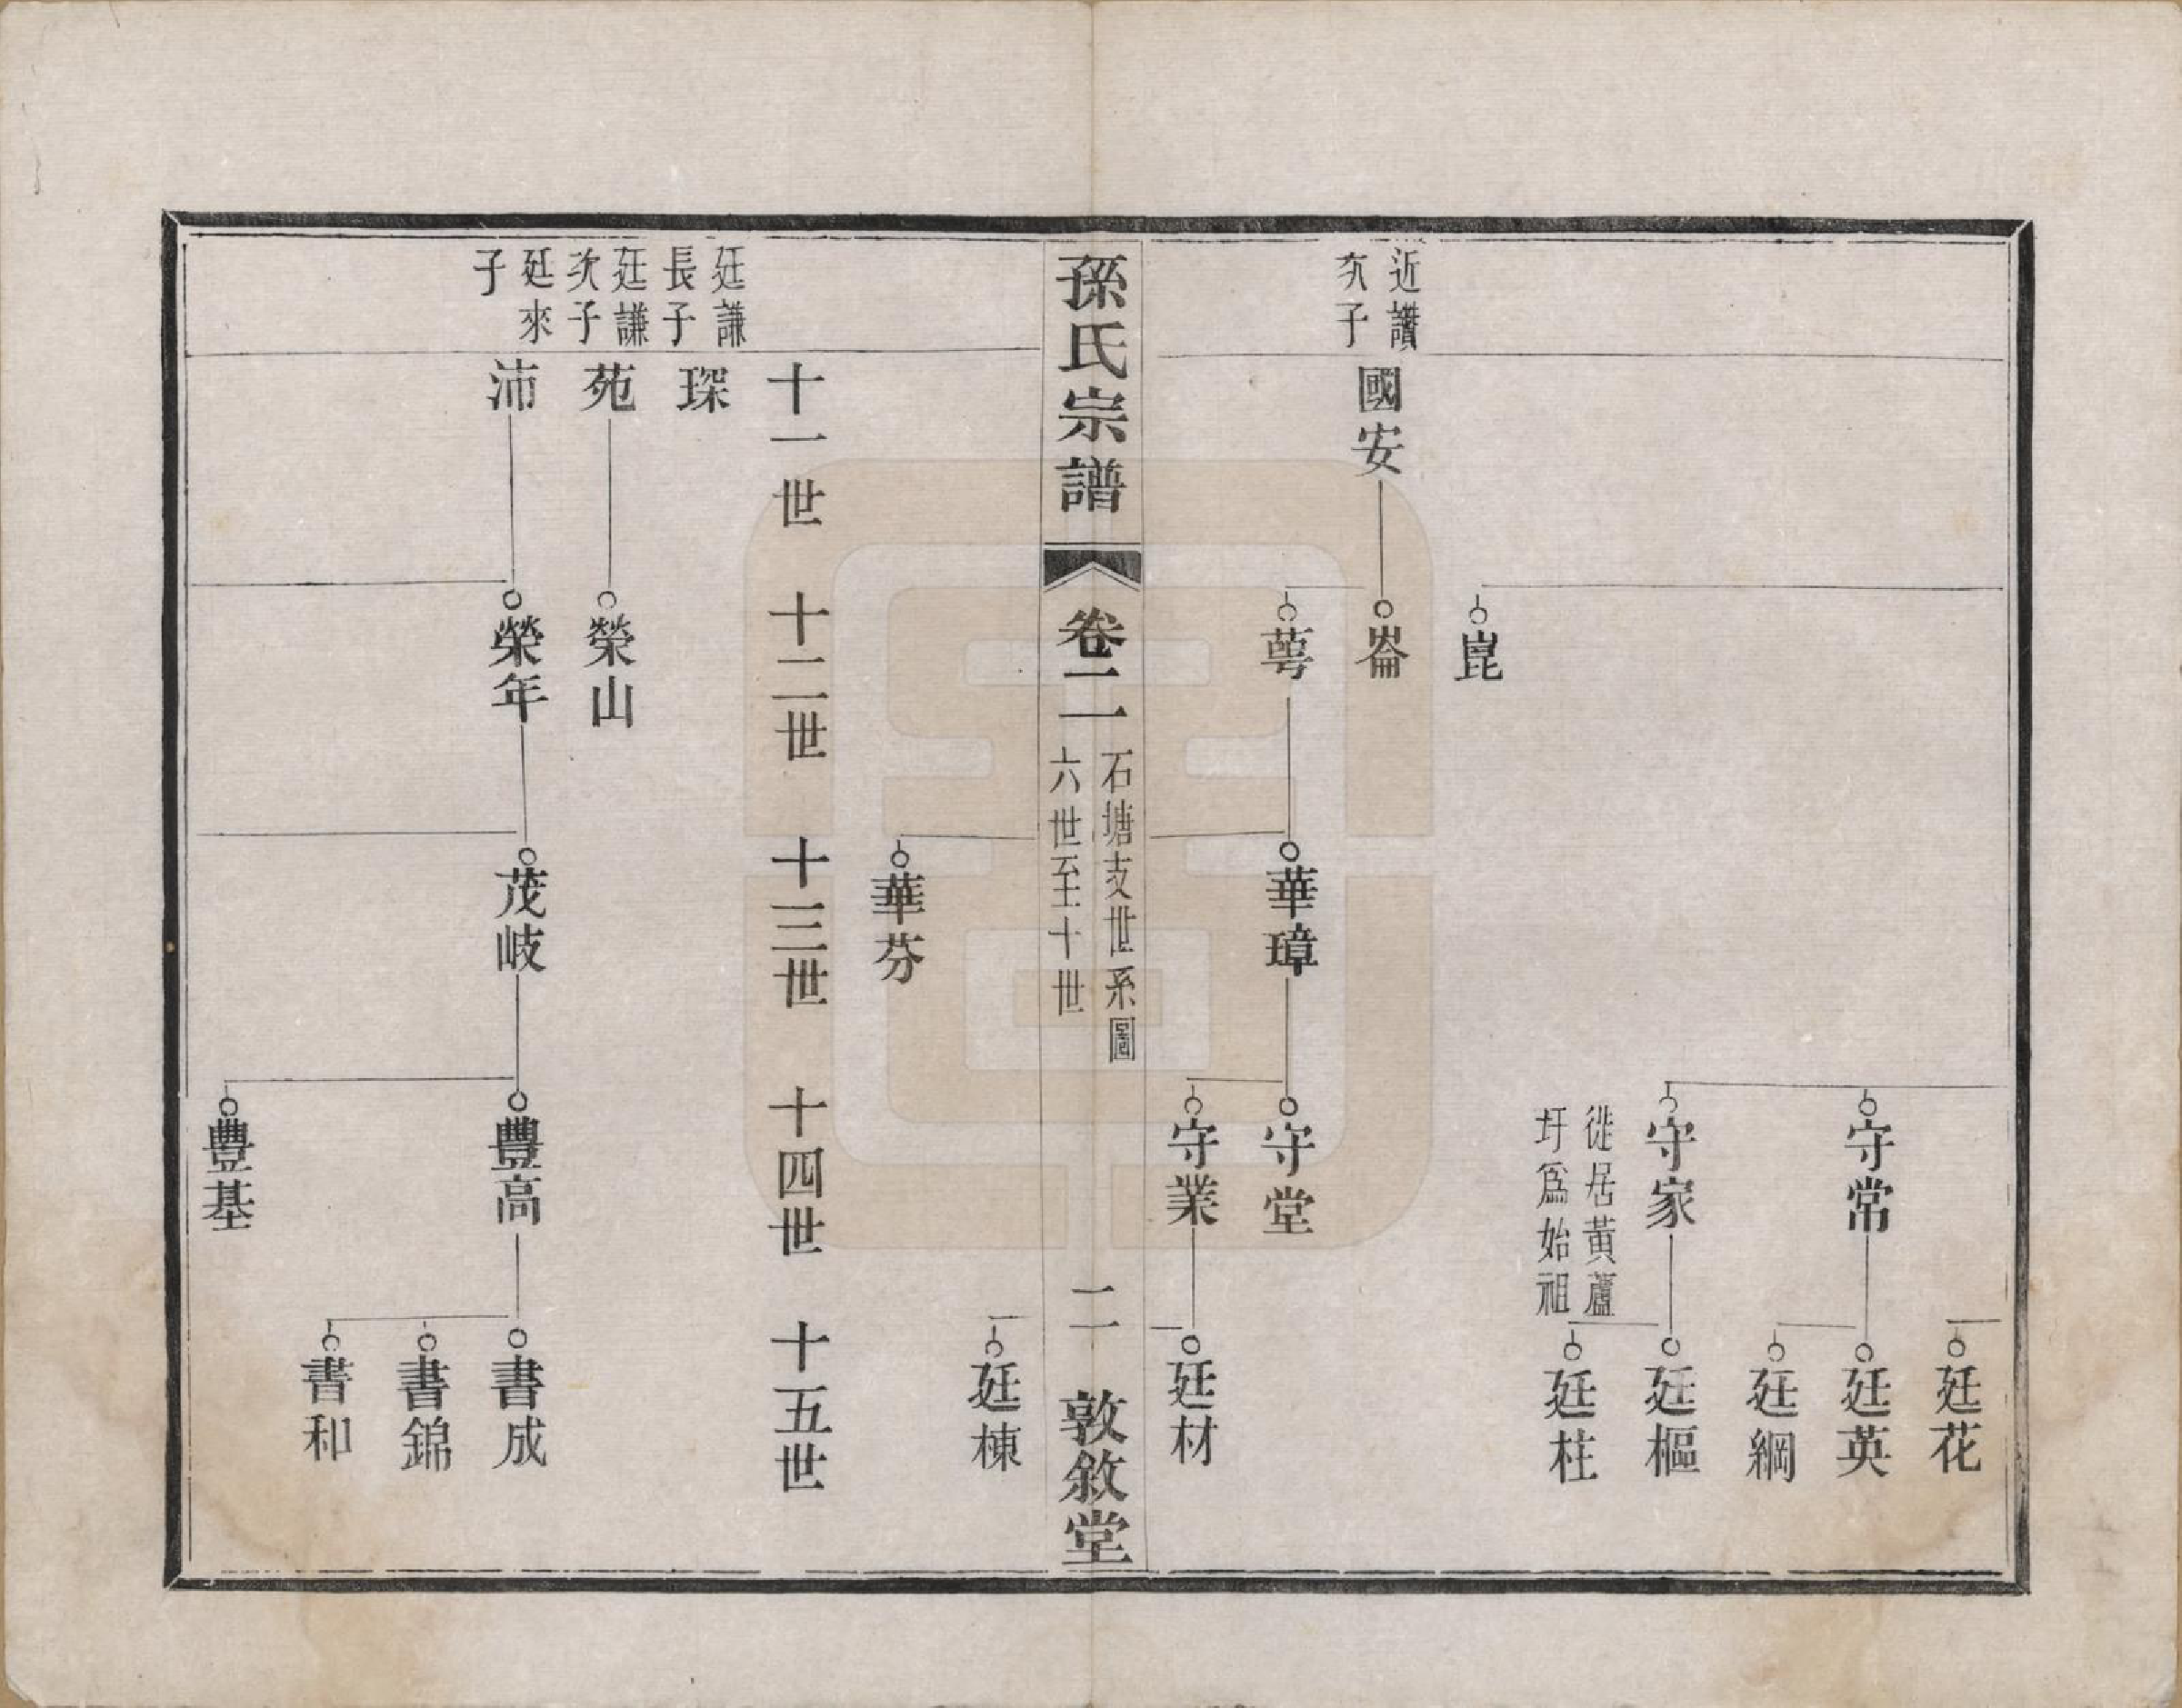 廷花
守常
廷英
廷綱
守家
徙居黃蘆
圩爲始祖
廷樞
廷柱
崑
近讚
次子
國安
崙
萼
華璋
守堂
守業
廷材
孫氏宗譜
卷二
石塘支世系圖
六世至十世
二
敦敘堂
廷棟
華芬
十一世
十二世
十三世
十四世
十五世
廷謙
長子
琛
廷謙
次子
苑
榮山
廷來
子
沛
榮年
茂岐
豐高
書成
書錦
書和
豐基